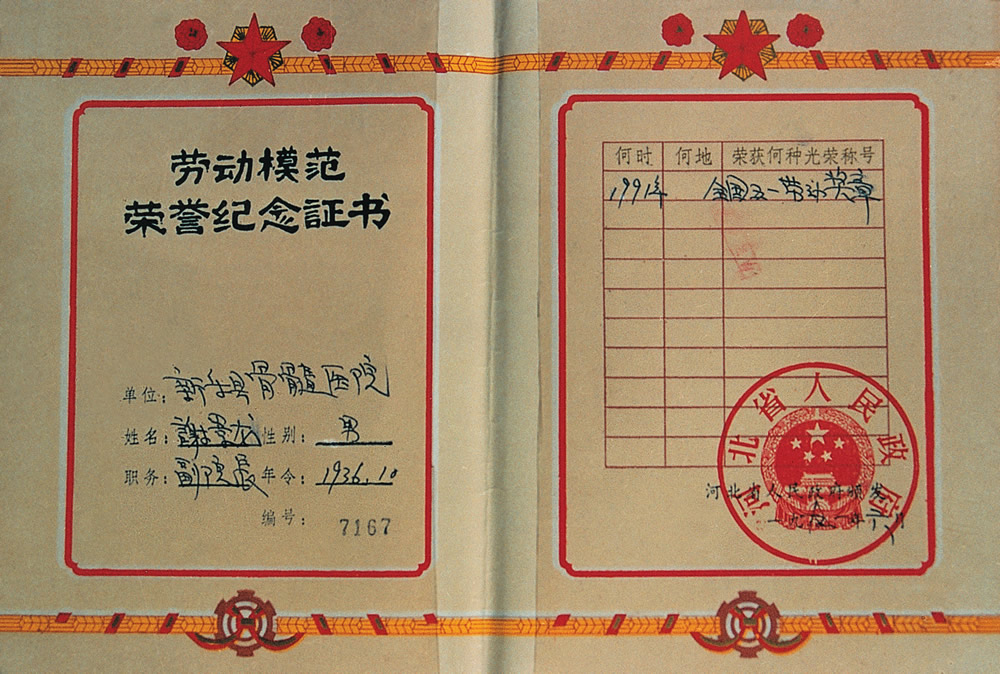 劳动模范
荣誉纪念証书
单位：新乐县骨髓医院
姓名：谢景龙 性别：男
职务：副院长 年令：1936.10
编号：7167
何时 何地 荣获何种光荣称号
1991年 全国五一劳动奖章
河北省人民政府
河北省人民政府颁发